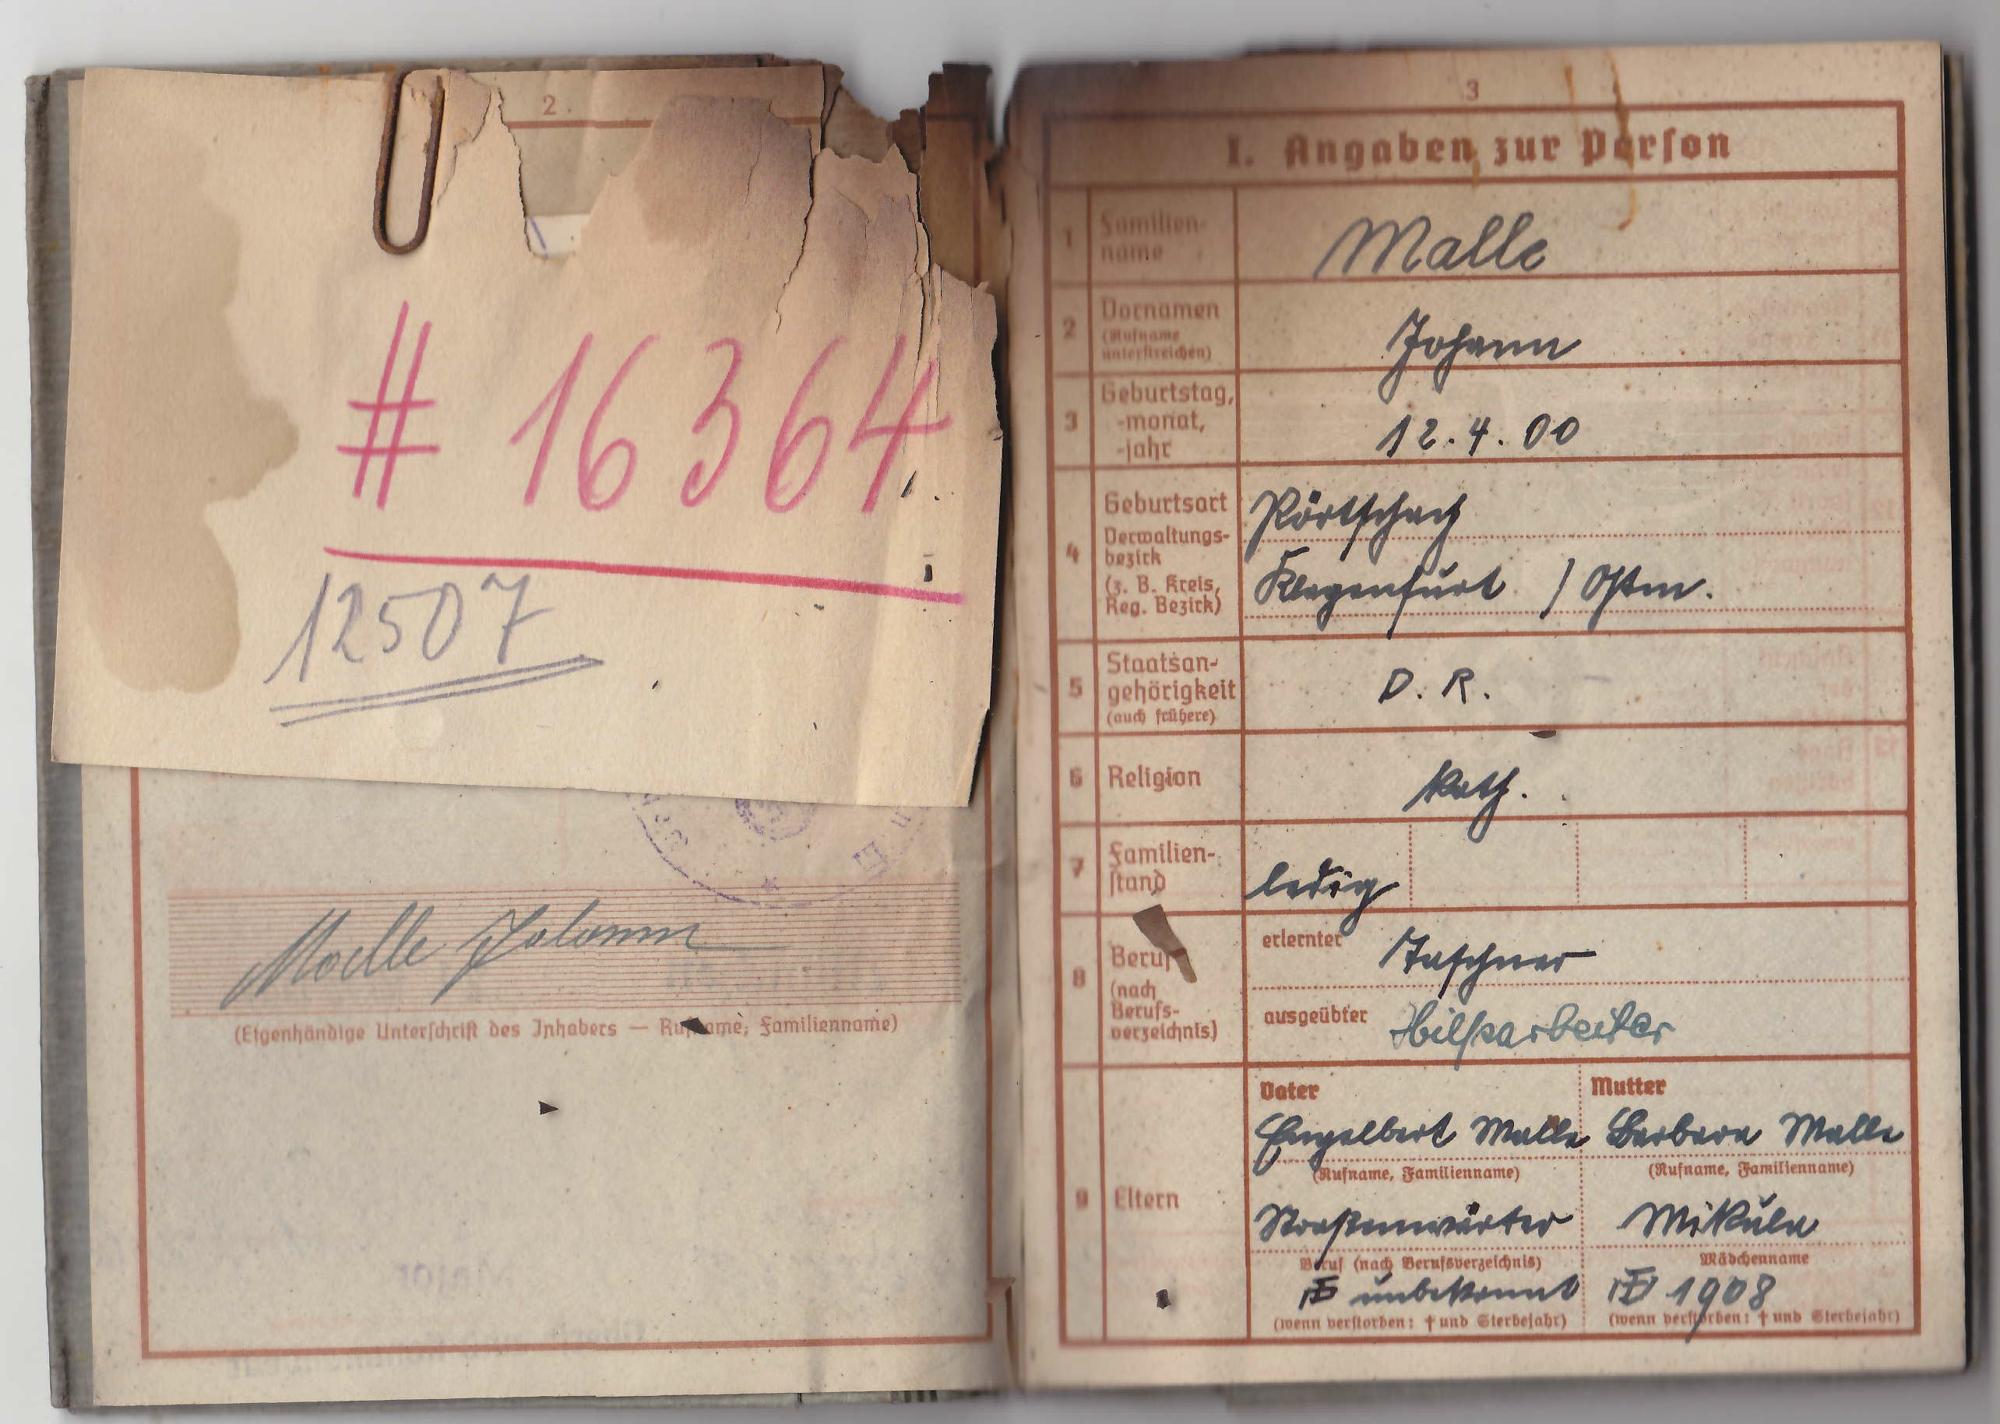 2.
# 16364
12507
Malle Johann
(Eigenhändige Unterschrift des Inhabers — Rufname, Familienname)
3
I. Angaben zur Person
1 Familien-
name
Malle
2 Vornamen
(Rufname
unterstreichen)
Johann
3 Geburtstag,
-monat,
-jahr
12.4.00
4 Geburtsort
Verwaltungs-
bezirk
(z. B. Kreis,
Reg. Bezirk)
Pörtschach
Klagenfurt / Ostm.
5 Staatsan-
gehörigkeit
(auch frühere)
D. R.
6 Religion
kath.
7 Familien-
stand
ledig
8 Beruf
(nach
Berufs-
verzeichnis)
erlernter Taschner
ausgeübter Hilfsarbeiter
9 Eltern
Vater Mutter
Engelbert Malle Barbara Malle
(Rufname, Familienname) (Rufname, Familienname)
Straßenwärter Mikula
Beruf (nach Berufsverzeichnis) Mädchenname
unbekannt 1908
(wenn verstorben: † und Sterbejahr) (wenn verstorben: † und Sterbejahr)